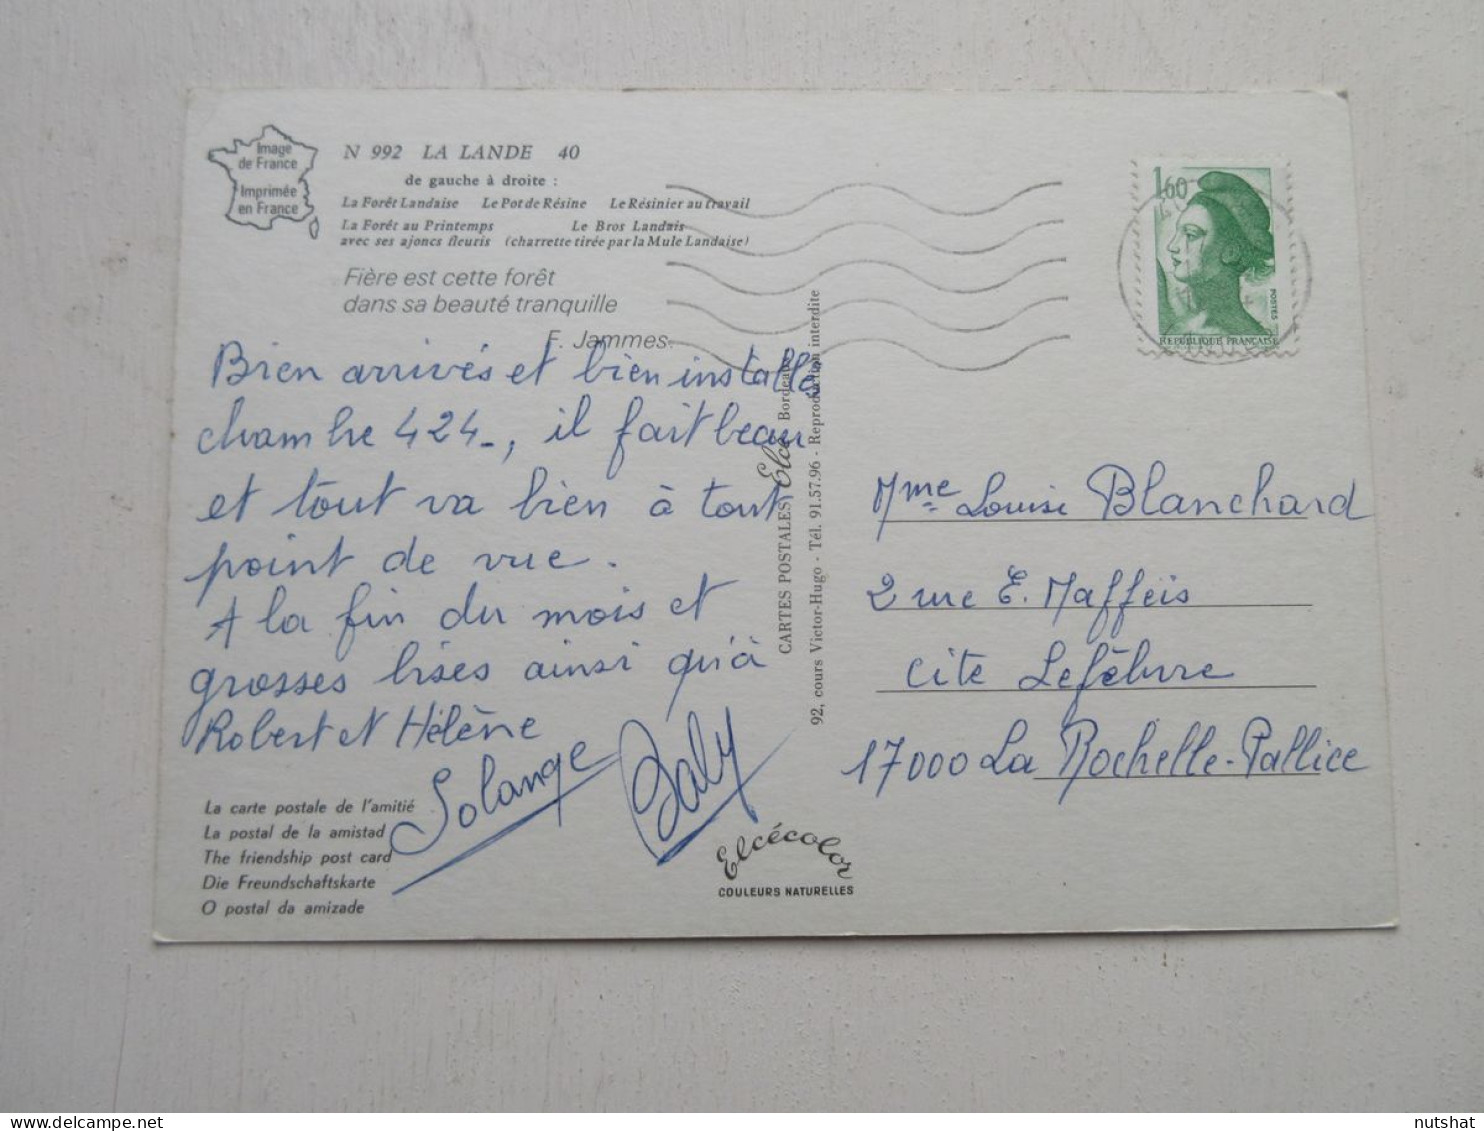 Image
de France
Imprimée
en France
N 992 LA LANDE 40
de gauche à droite :
La Forêt Landaise Le Pot de Résine Le Résinier au travail
La Forêt au Printemps Le Bros Landais
avec ses ajoncs fleuris (charrette tirée par la Mule Landaise)
Fière est cette forêt
dans sa beauté tranquille
F. Jammes.
Bien arrivés et bien installés
chambre 424-, il fait beau
et tout va bien à tout
point de vue.
A la fin du mois et
grosses bises ainsi qu'à
Robert et Hélène
Solange Baly
La carte postale de l'amitié
La postal de la amistad
The friendship post card
Die Freundschaftskarte
O postal da amizade
CARTES POSTALES Elcé Bordeaux
92, cours Victor-Hugo - Tél. 91.57.96 - Reproduction interdite
Elcécolor
COULEURS NATURELLES
1,60
POSTES
REPUBLIQUE FRANÇAISE
Mme Louise Blanchard
2 rue E. Maffeis
cite Lefèbvre
17000 La Rochelle-Pallice
nutshat